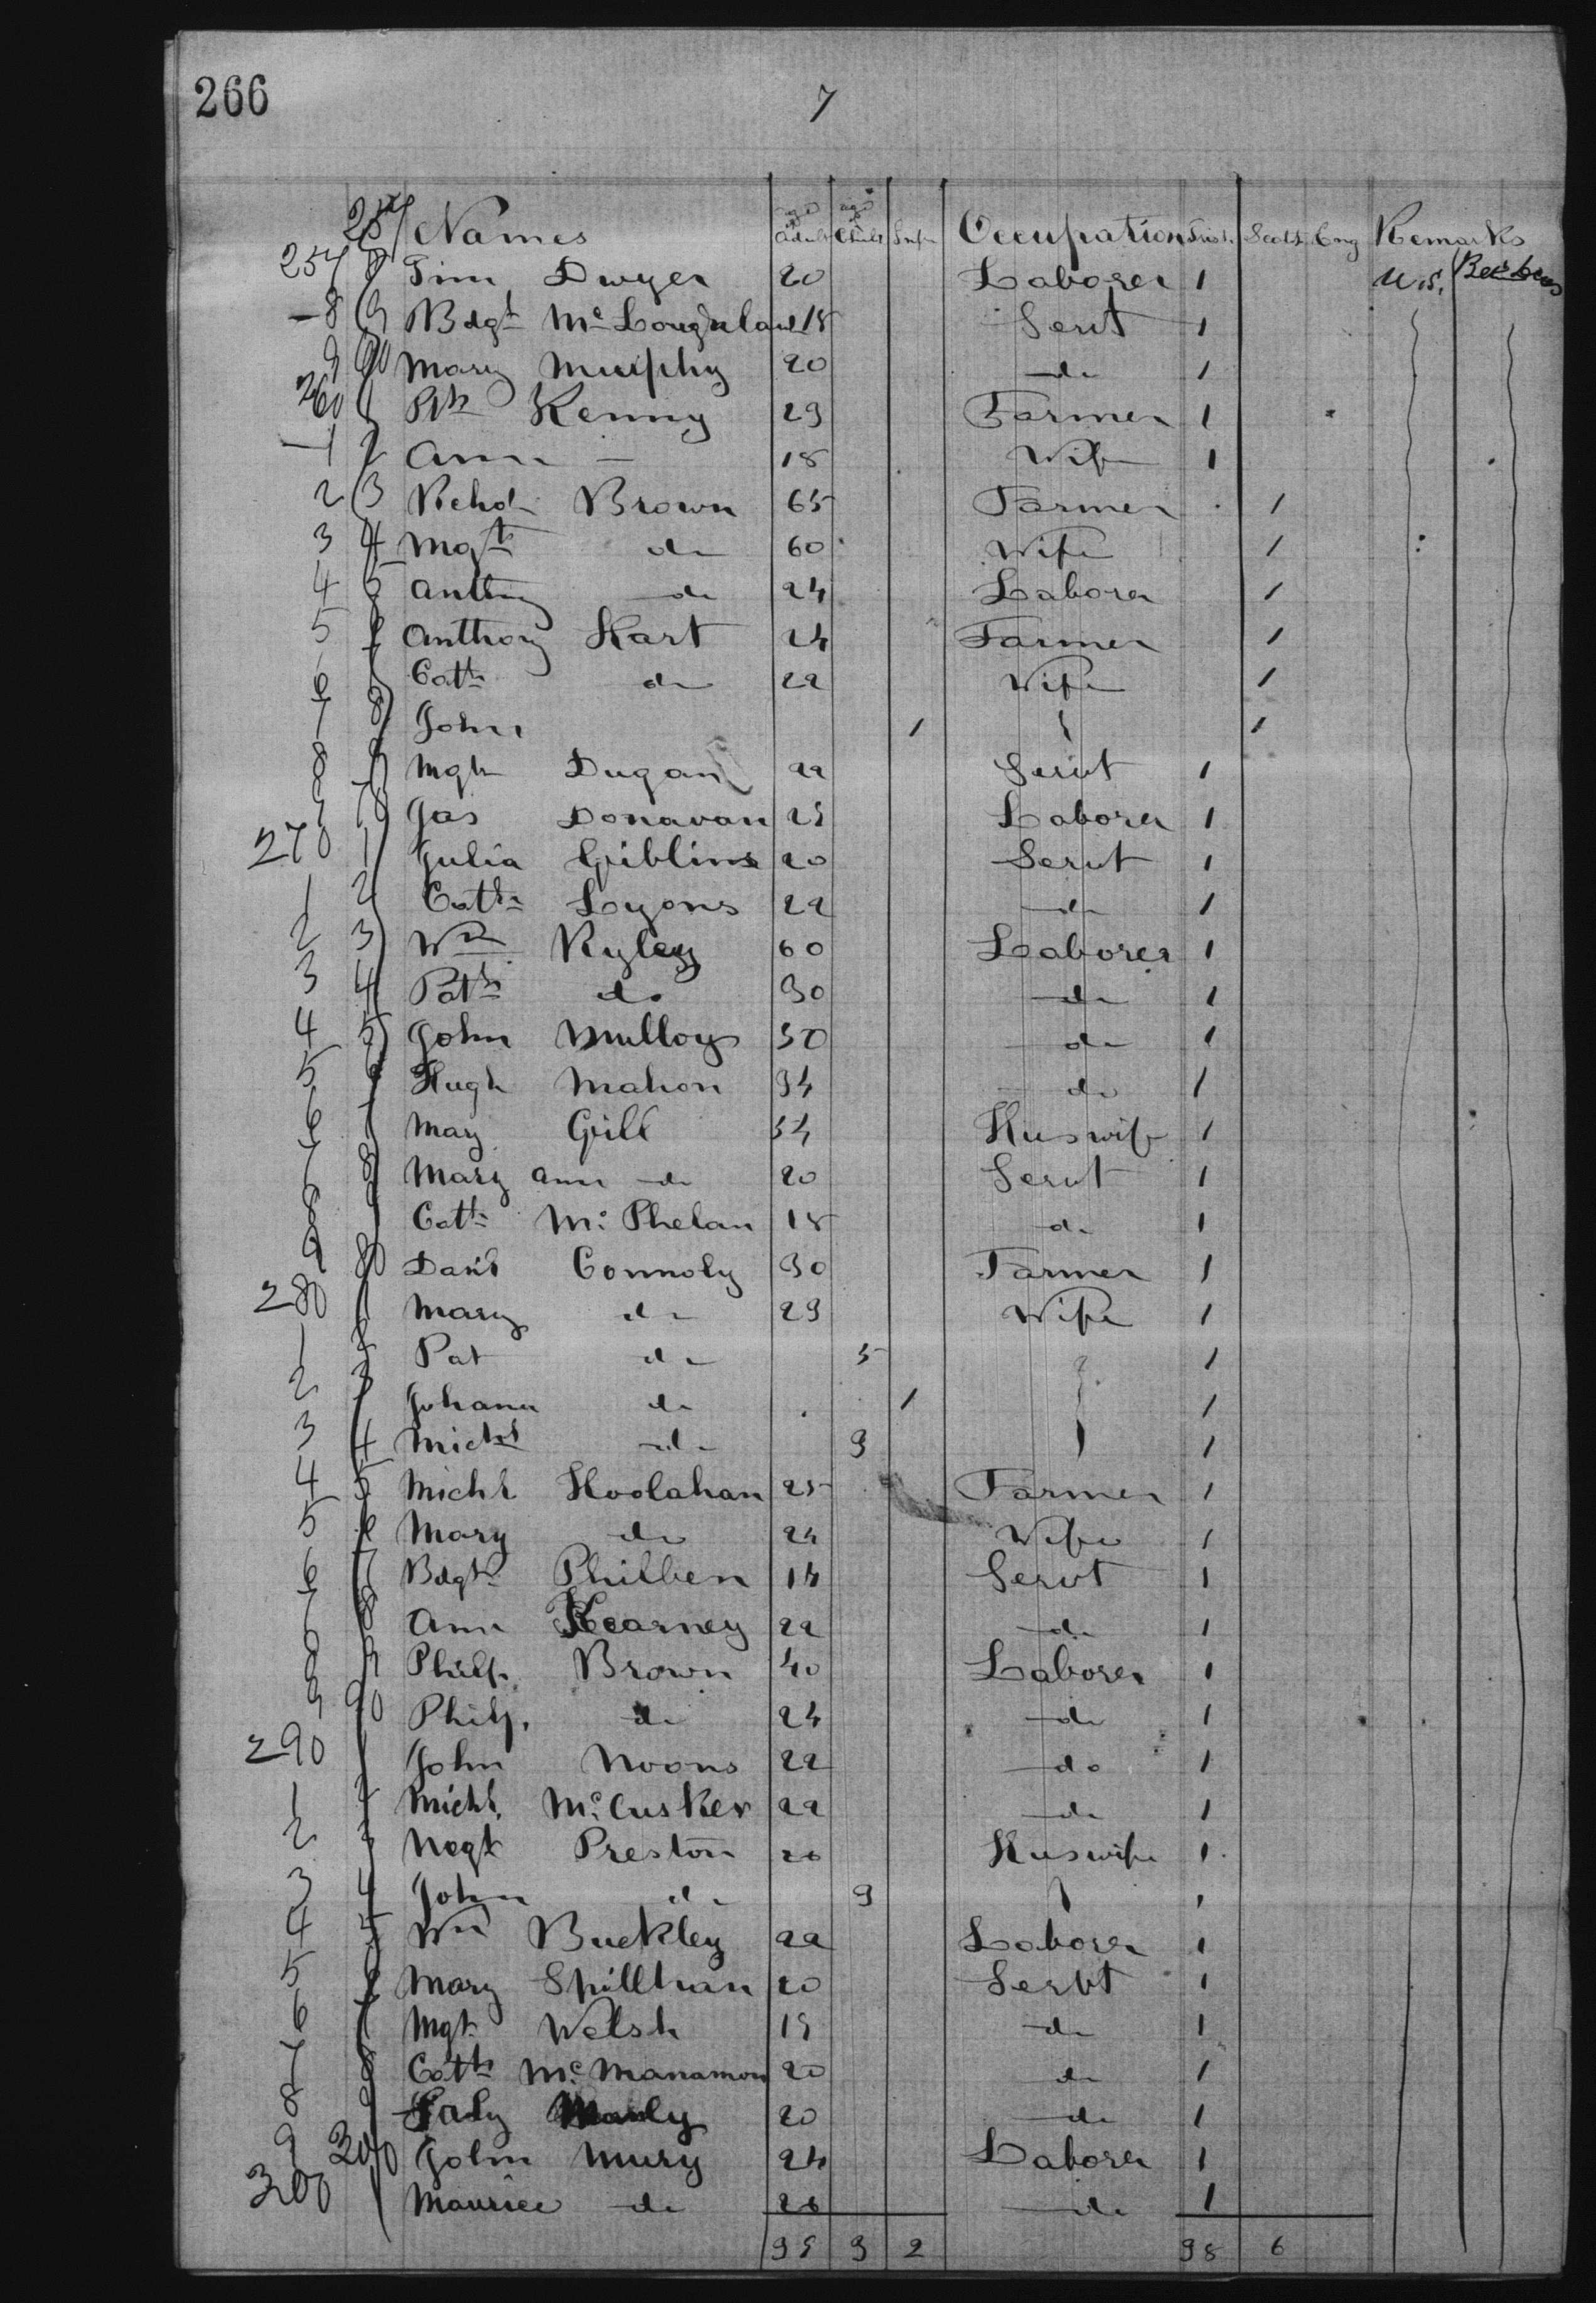 266
7
257 Names age Adult age Child Inf Occupation Irish Scoth Eng Remarks
257 8 Tim Dwyer 20 Laborer 1 U.S.
8 9 Bdgt McLoughland 18 Servt 1
9 60 Mary Murphy 20 do 1
260 1 Ptk Kenny 23 Farmer 1
1 2 Ann — 18 Wife 1
2 3 Richd Brown 65 Farmer 1
3 4 Mgt do 60 Wife 1
4 5 Anthny do 24 Laborer 1
5 6 Anthony Hart 24 Farmer 1
6 7 Cath do 22 Wife 1
7 8 John 1 1
8 9 Mgt Dugan 22 Servt 1
9 70 Jas Donavan 25 Laborer 1
270 1 Julia Giblins 20 Servt 1
1 2 Cath Lyons 22 do 1
2 3 Wm Ryley 60 Laborer 1
3 4 Patk do 30 do 1
4 5 John Mulloy 30 do 1
5 6 Hugh Mahon 34 do 1
6 7 Mary Gill 34 Huswife 1
7 8 Mary Ann do 20 Servt 1
8 9 Cath McPhelan 18 do 1
9 80 Danl Connoly 30 Farmer 1
280 1 Mary do 23 Wife 1
1 2 Pat do 5 1
2 3 Johana do 1 1
3 4 Michl do 3 1
4 5 Michl Hoolahan 25 Farmer 1
5 6 Mary do 24 Wife 1
6 7 Bdgt Philben 14 Servt 1
7 8 Ann Kearney 22 do 1
8 9 Philp Brown 40 Laborer 1
9 90 Philp. do 24 do 1
290 1 John Noons 22 do 1
1 2 Michl. McCusker 22 do 1
2 3 Mgt Preston 26 Huswife 1
3 4 John do 3 1
4 5 Wm Buckley 22 Laborer 1
5 6 Mary Spilllhan 20 Servt 1
6 7 Mgt Welsh 19 do 1
7 8 Cath McManamon 20 do 1
8 9 20 do 1
9 300 John Mury 24 Laborer 1
300 1 Maurice do 26 do 1
39 3 2 38 6